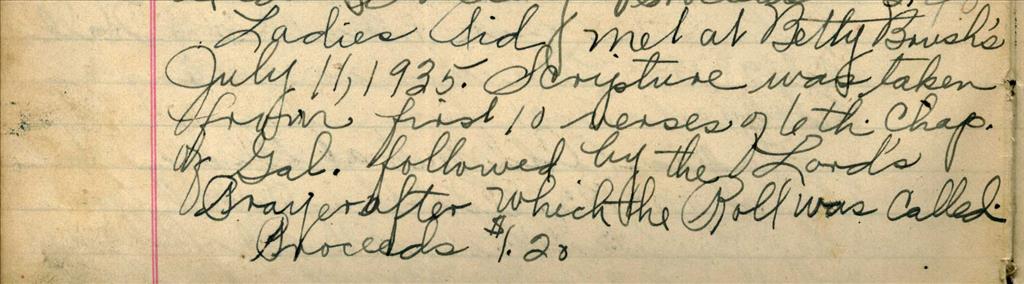 Ladies Aid met at Betty Brush's
July 11, 1935. Scripture was taken
from first 10 verses of 6th. Chap.
of Gal. followed by the Lord's
Prayer after which the Roll was called.
Proceeds $1.20